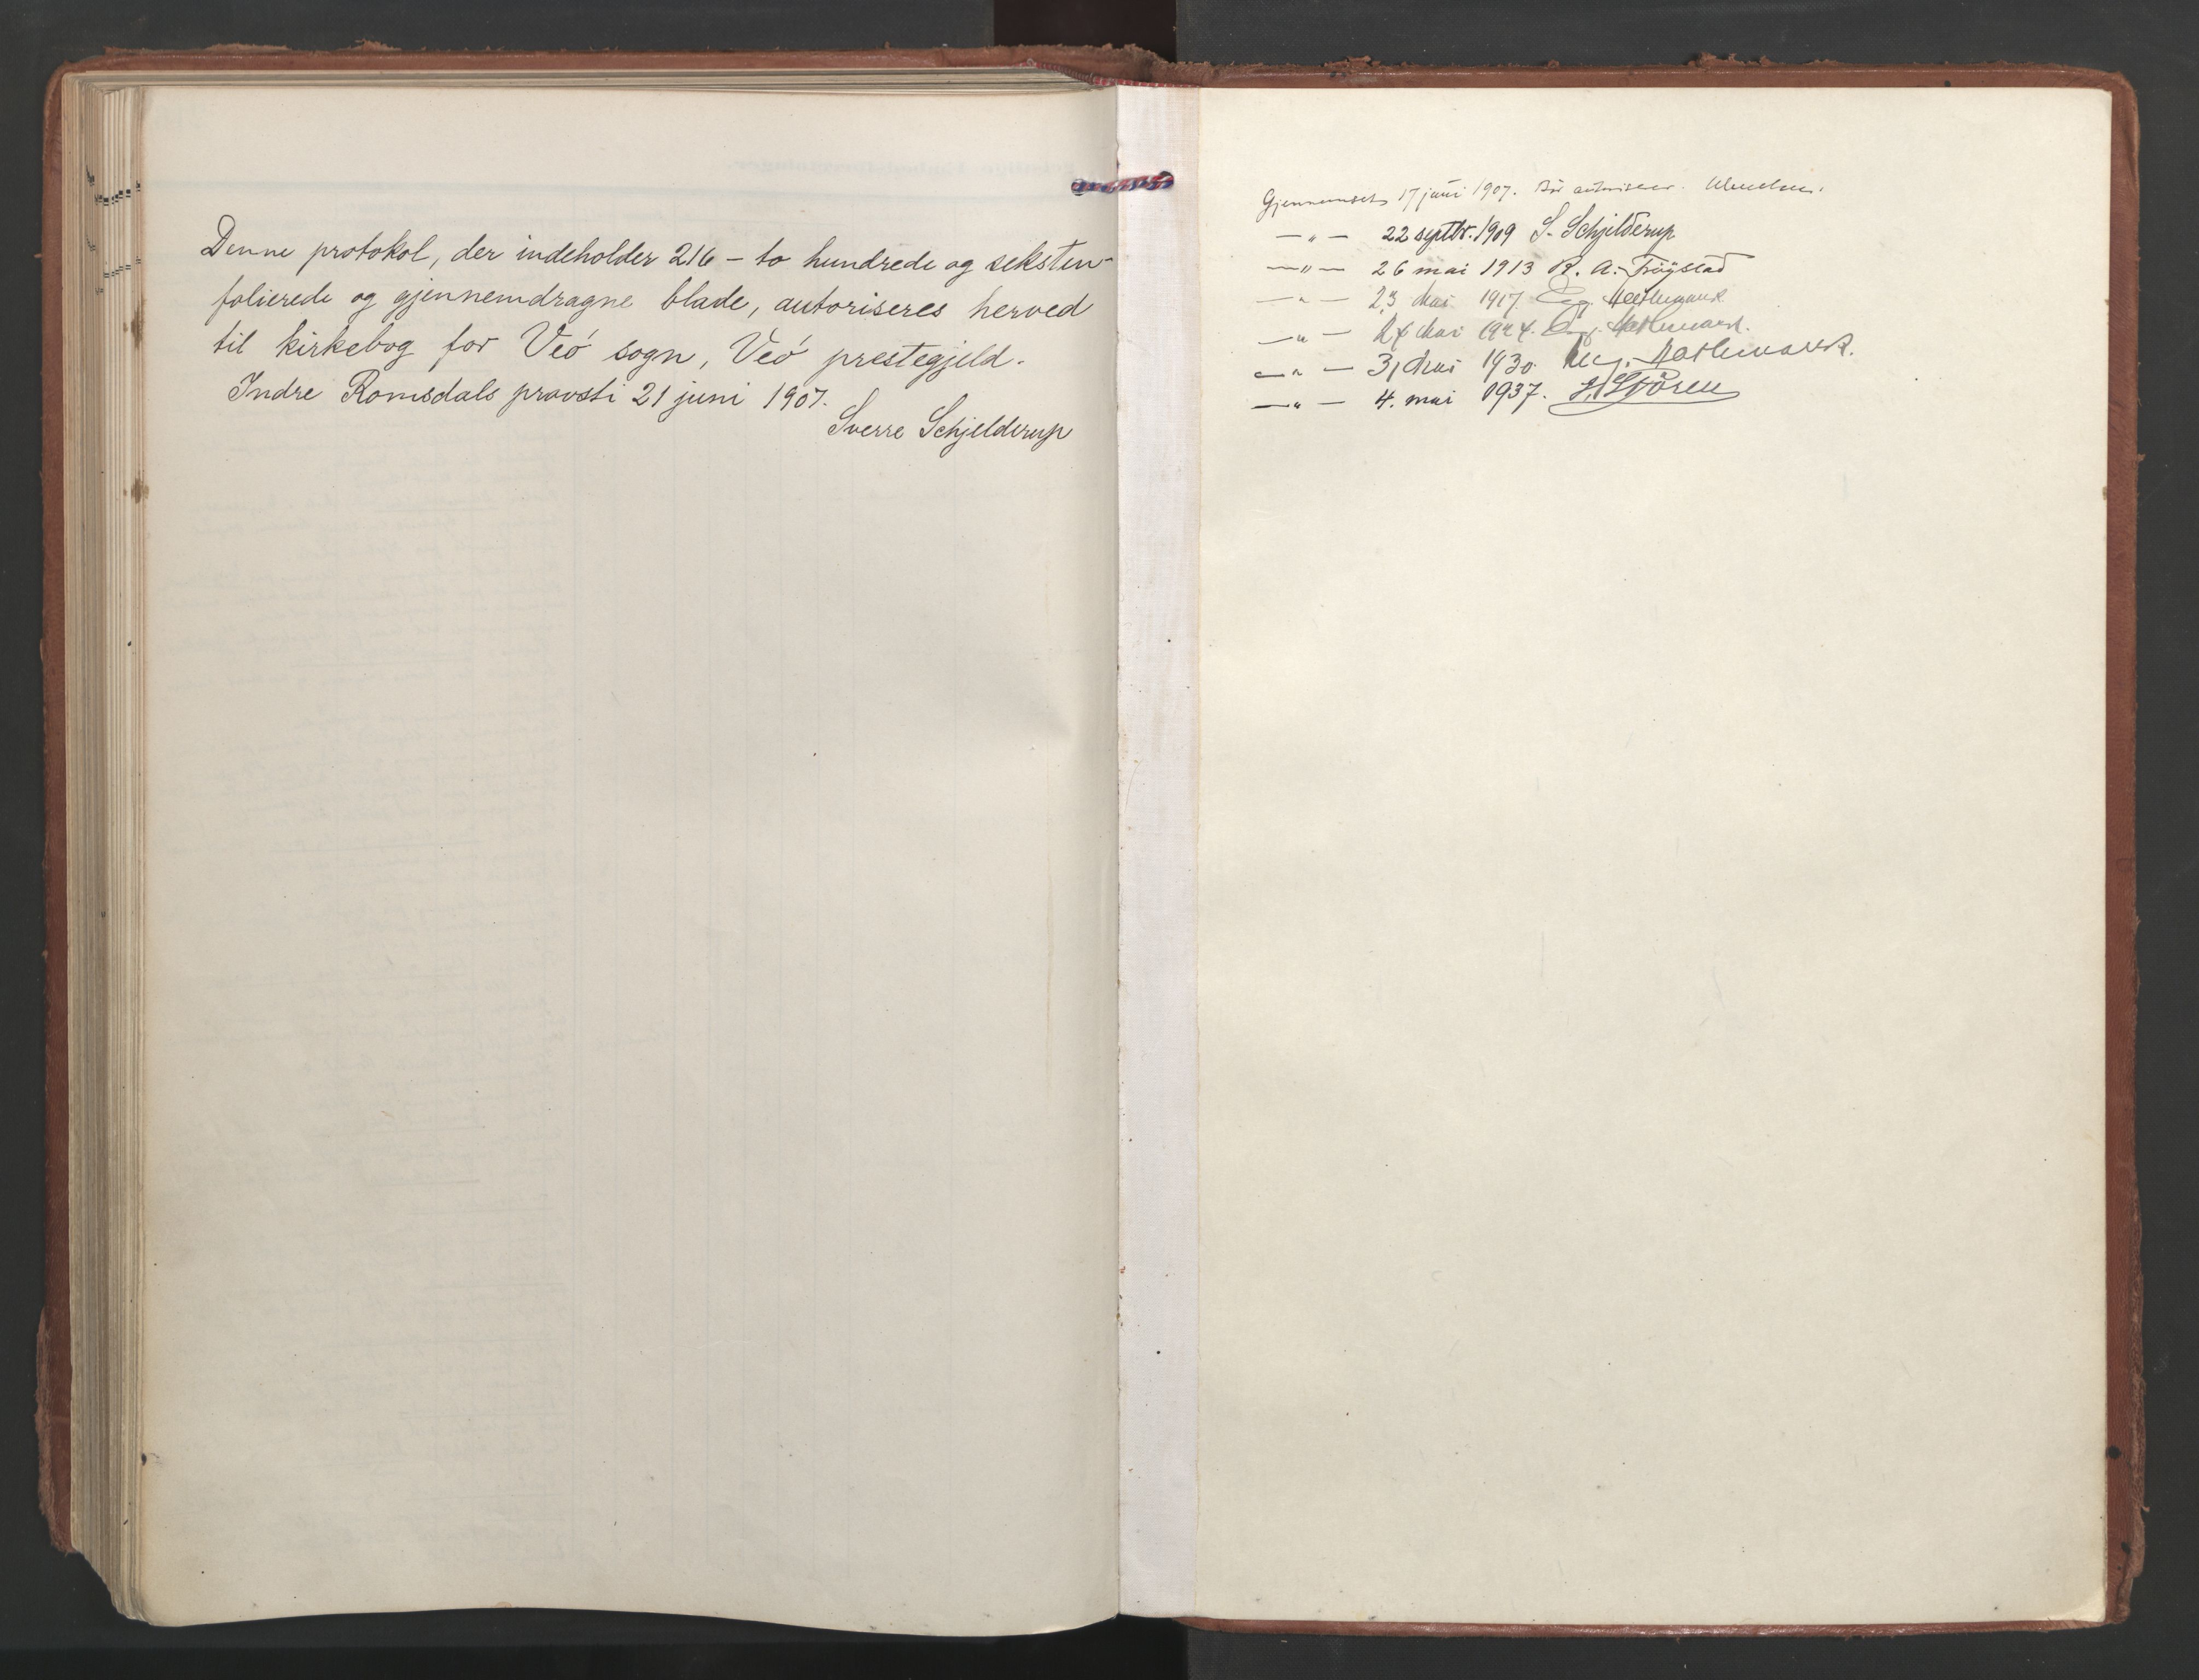 Denne protokol, der indeholder 216 – to hundrede og seksten
folierede og gjennemdragne blade, autoriseres herved
til kirkebog for Veó sogn, Veó prestegjeld.
Indre Romsdals provsti 21 juni 1907.
Sverre Schjelderup
Gjennemset 17 juni 1907. Bør autoriseres.
— " — 22 septbr. 1909 S. Schjelderup
— " — 26 mai 1913 R. A. Frøystad
— " — 23 Mai 1917.
— " — 24 Mai 1924.
— " — 31 Mai 1930.
— " — 4. mai 1937.